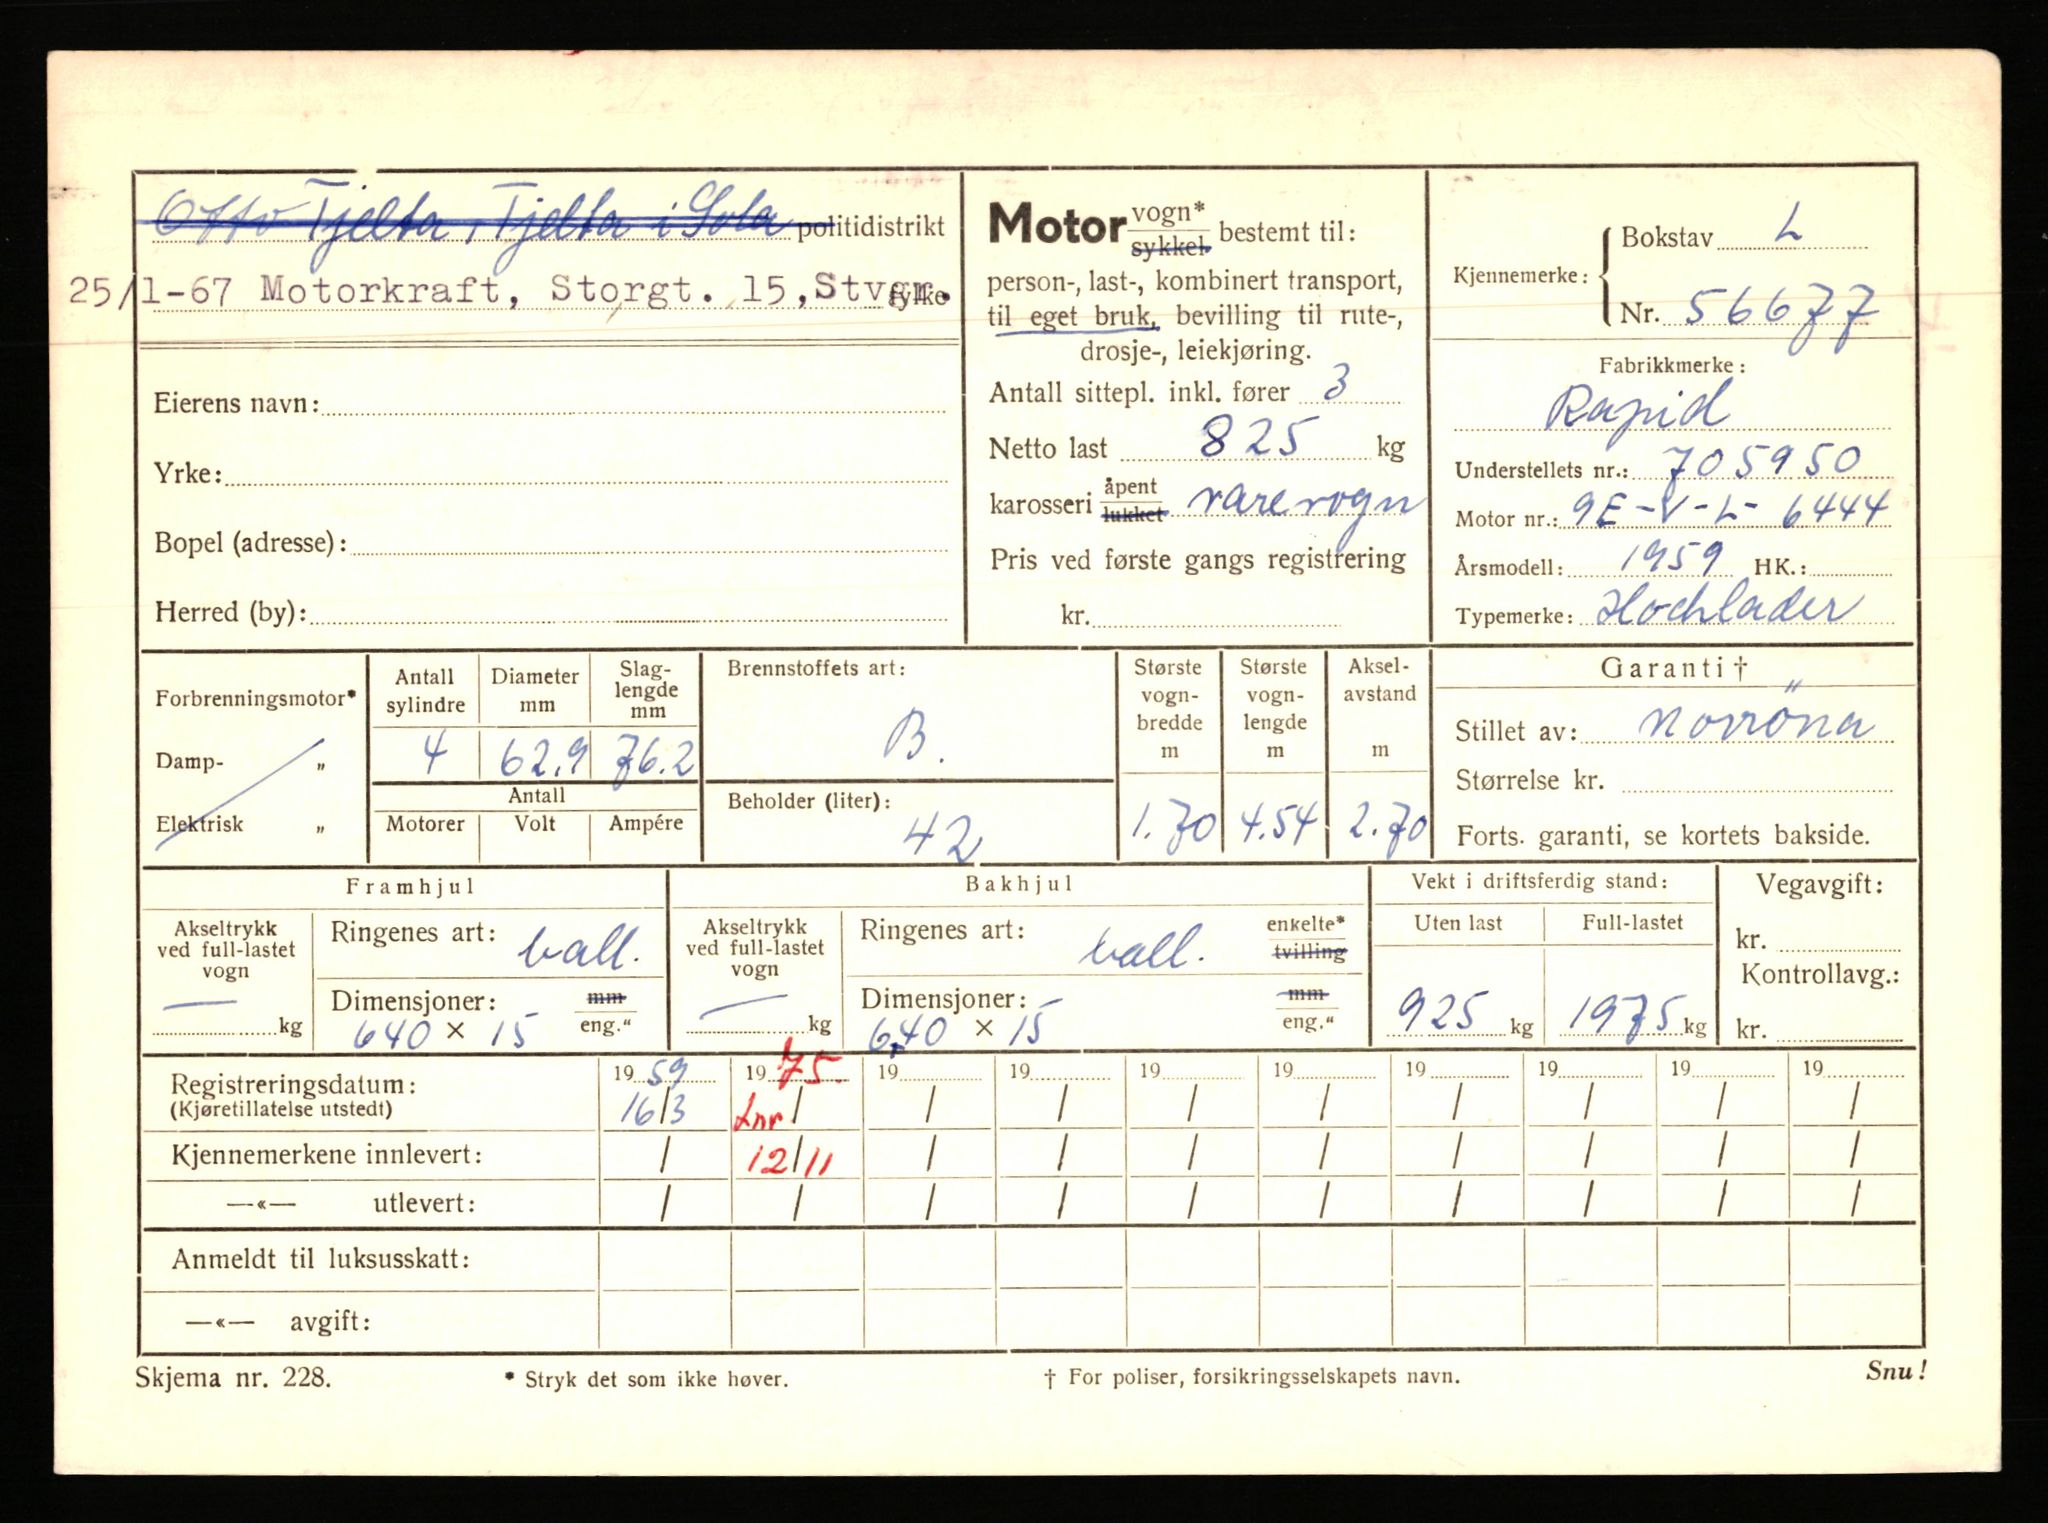 Otto Tjelta, Tjelta i Sola politidistrikt
25/1-67 Motorkraft, Storgt. 15, Stvgr. fylke
Eierens navn:
Yrke:
Bopel (adresse):
Herred (by):
Motor vogn* sykkel bestemt til:
person-, last-, kombinert transport,
til eget bruk, bevilling til rute-,
drosje-, leiekjøring.
Antall sittepl. inkl. fører 3
Netto last 825 kg
karosseri åpent lukket varevogn
Pris ved første gangs registrering
kr.
Kjennemerke: Bokstav L
Nr. 56677
Fabrikkmerke:
Rapid
Understellets nr.: 705950
Motor nr.: 9E-V-L- 6444
Årsmodell: 1959 HK.:
Typemerke: Hochlader
Forbrenningsmotor*
Damp- „
Elektrisk „
Antall sylindre
4
Diameter mm
62.9
Slag-lengde mm
76.2
Antall
Motorer Volt Ampére
Brennstoffets art:
B.
Beholder (liter):
42
Største vogn-bredde m
1.70
Største vogn-lengde m
4.54
Aksel-avstand m
2.70
Garanti †
Stillet av: Norröna
Størrelse kr.
Forts. garanti, se kortets bakside.
Framhjul
Akseltrykk ved full-lastet vogn
— kg
Ringenes art: ball.
Dimensjoner: mm
640 × 15 eng."
Bakhjul
Akseltrykk ved full-lastet vogn
— kg
Ringenes art: ball. enkelte* tvilling
Dimensjoner: mm
6,40 × 15 eng."
Vekt i driftsferdig stand:
Uten last Full-lastet
925 kg 1975 kg
Vegavgift:
kr.
Kontrollavg.:
kr.
Registreringsdatum: 19 59 19 75. 19 19 19 19 19 19 19 19
(Kjøretillatelse utstedt) 16/3 Lnr / / / / / / / / /
Kjennemerkene innlevert: / 12/11 / / / / / / / /
—«— utlevert: / / / / / / / / / /
Anmeldt til luksusskatt:
—«— avgift:
Skjema nr. 228. * Stryk det som ikke høver. † For poliser, forsikringsselskapets navn. Snu!